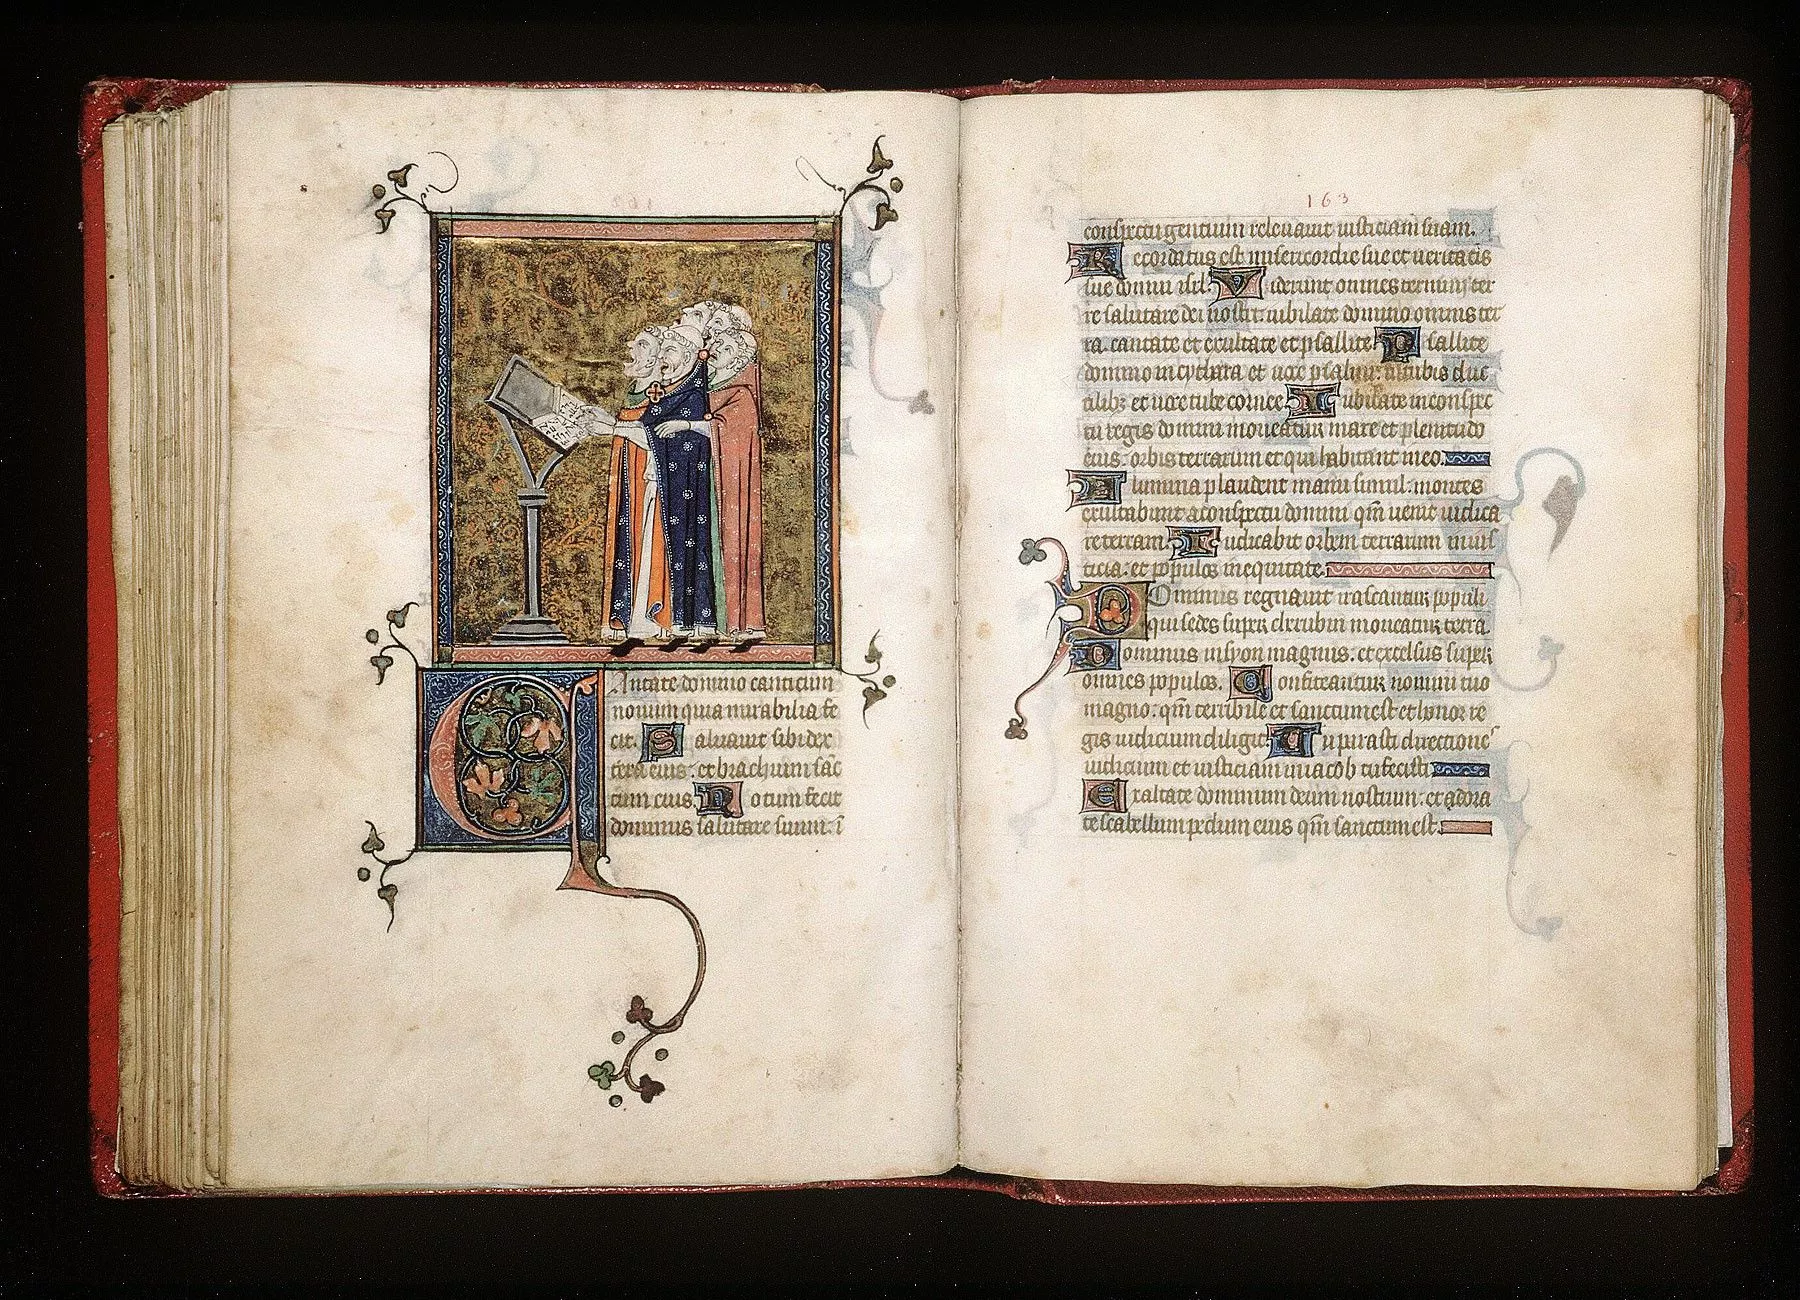 Antate domino canticum
nouum quia mirabilia fe
cit. Saluauit sibi dex
tera eius: et brachium sāc
tum eius. Notum fecit
dominus salutare suum: ī
163
conspectu gentium releuauit iusticiam suam.
Recordatus est misericordie sue et ueritatis
sue domui isrl. Viderunt omnes termini ter
re salutare dei nostri: iubilate domino omnis ter
ra. cantate et exultate et psallite. Psallite
domino in cythara et uoce psalmi: in tubis duc
tilibz et uoce tube cornee. Iubilate in conspec
tu regis domini moueatur mare et plenitudo
eius: orbis terrarum et qui habitant in eo.
Flumina plaudent manu simul: montes
exultabunt a conspectu domini qm̄ uenit iudica
re terram. Iudicabit orbem terrarum in ius
ticia: et populos in equitate.
Dominus regnauit irascantur populi
qui sedes super cherubin moueatur terra.
Dominus in syon magnus: et excelsus super
omnes populos. Confiteantur nomini tuo
magno: qm̄ terribile et sanctum est et honor re
gis iudicium diligit. Tu parasti directiones
iudicium et iusticiam in iacob tu fecisti.
Exaltate dominum deum nostrum: et adora
te scabellum pedum eius qm̄ sanctum est.